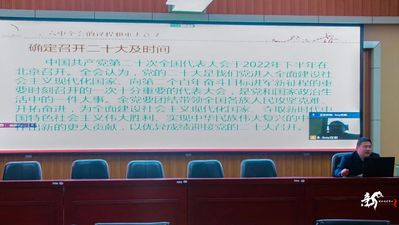 确定召开二十大及时间
中国共产党第二十次全国代表大会于2022年下半年在
北京召开。全会认为，党的二十大是我们党进入全面建设社
会主义现代化国家、向第二个百年奋斗目标进军新征程的重
要时刻召开的一次十分重要的代表大会，是党和国家政治生
活中的一件大事。全党要团结带领全国各族人民攻坚克难、
开拓奋进，为全面建设社会主义现代化国家、夺取新时代中
国特色社会主义伟大胜利、实现中华民族伟大复兴的中
作出新的更大贡献，以优异成绩迎接党的二十大召开。